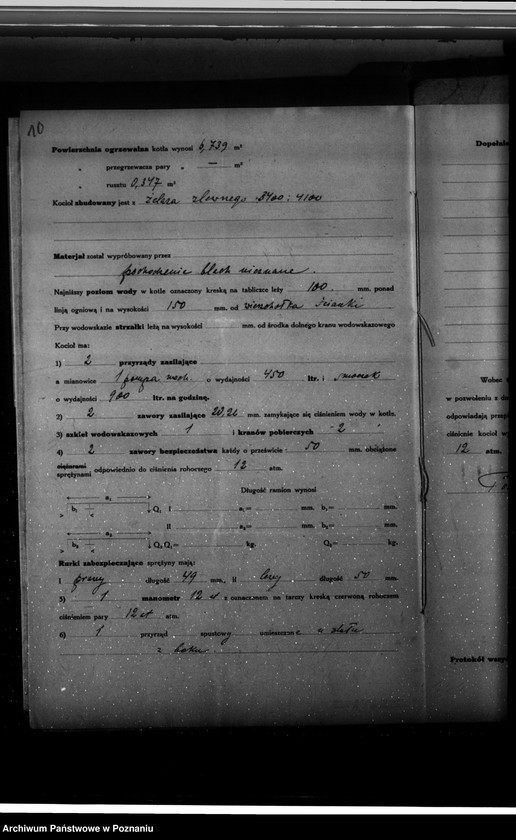 10
Powierzchnia ogrzewalna kotła wynosi 6,739 m²
" przegrzewacza pary " — m²
" rusztu 0,347 m²
Kocioł zbudowany jest z żelaza zlewnego 3400 : 4100
Materjał został wypróbowany przez
pochodzenie blach nieznane.
Najniższy poziom wody w kotle oznaczony kreską na tabliczce leży 100. mm. ponad
linją ogniową i na wysokości 150 mm. od wierzchołka ścianki
Przy wodowskazie strzałki leżą na wysokości mm. od środka dolnego kranu wodowskazowego
Kocioł ma:
1) 2 przyrządy zasilające
a mianowice 1 pompa o wydajności 450 ltr. i smoczek
o wydajności 900 ltr. na godzinę,
2) 2 zawory zasilające mm. zamykające się ciśnieniem wody w kotle.
3) szkieł wodowskazowych 1 i kranów pobierczych 2
4) 2 zawory bezpieczeństwa każdy o prześwicie 50 mm. obciążone
ciężarami
sprężynami odpowiednio do ciśnienia roboczego 12 atm.
Długość ramion wynosi
a₁ b₁ Q₁ I a₁= mm. b₁= mm.
II a₂= mm. b₂= mm.
a₂ b₂ Q₂ Q₁= kg. Q₂= kg.
Rurki zabezpieczające sprężyny mają:
I prawy długość 49 mm., II lewy długość 50 mm.
5) 1 manometr 12 at z oznaczeniem na tarczy kreską czerwoną roboczem
ciśnieniem pary 12 at. atm.
6) 1 przyrząd spustowy umieszczone u dołu
z boku
Dopełnie
Wobec
w pozwoleniu z d
odpowiadają przep
ciśnienie kocioł w
12 atm.
Protokół wszy
Archiwum Państwowe w Poznaniu